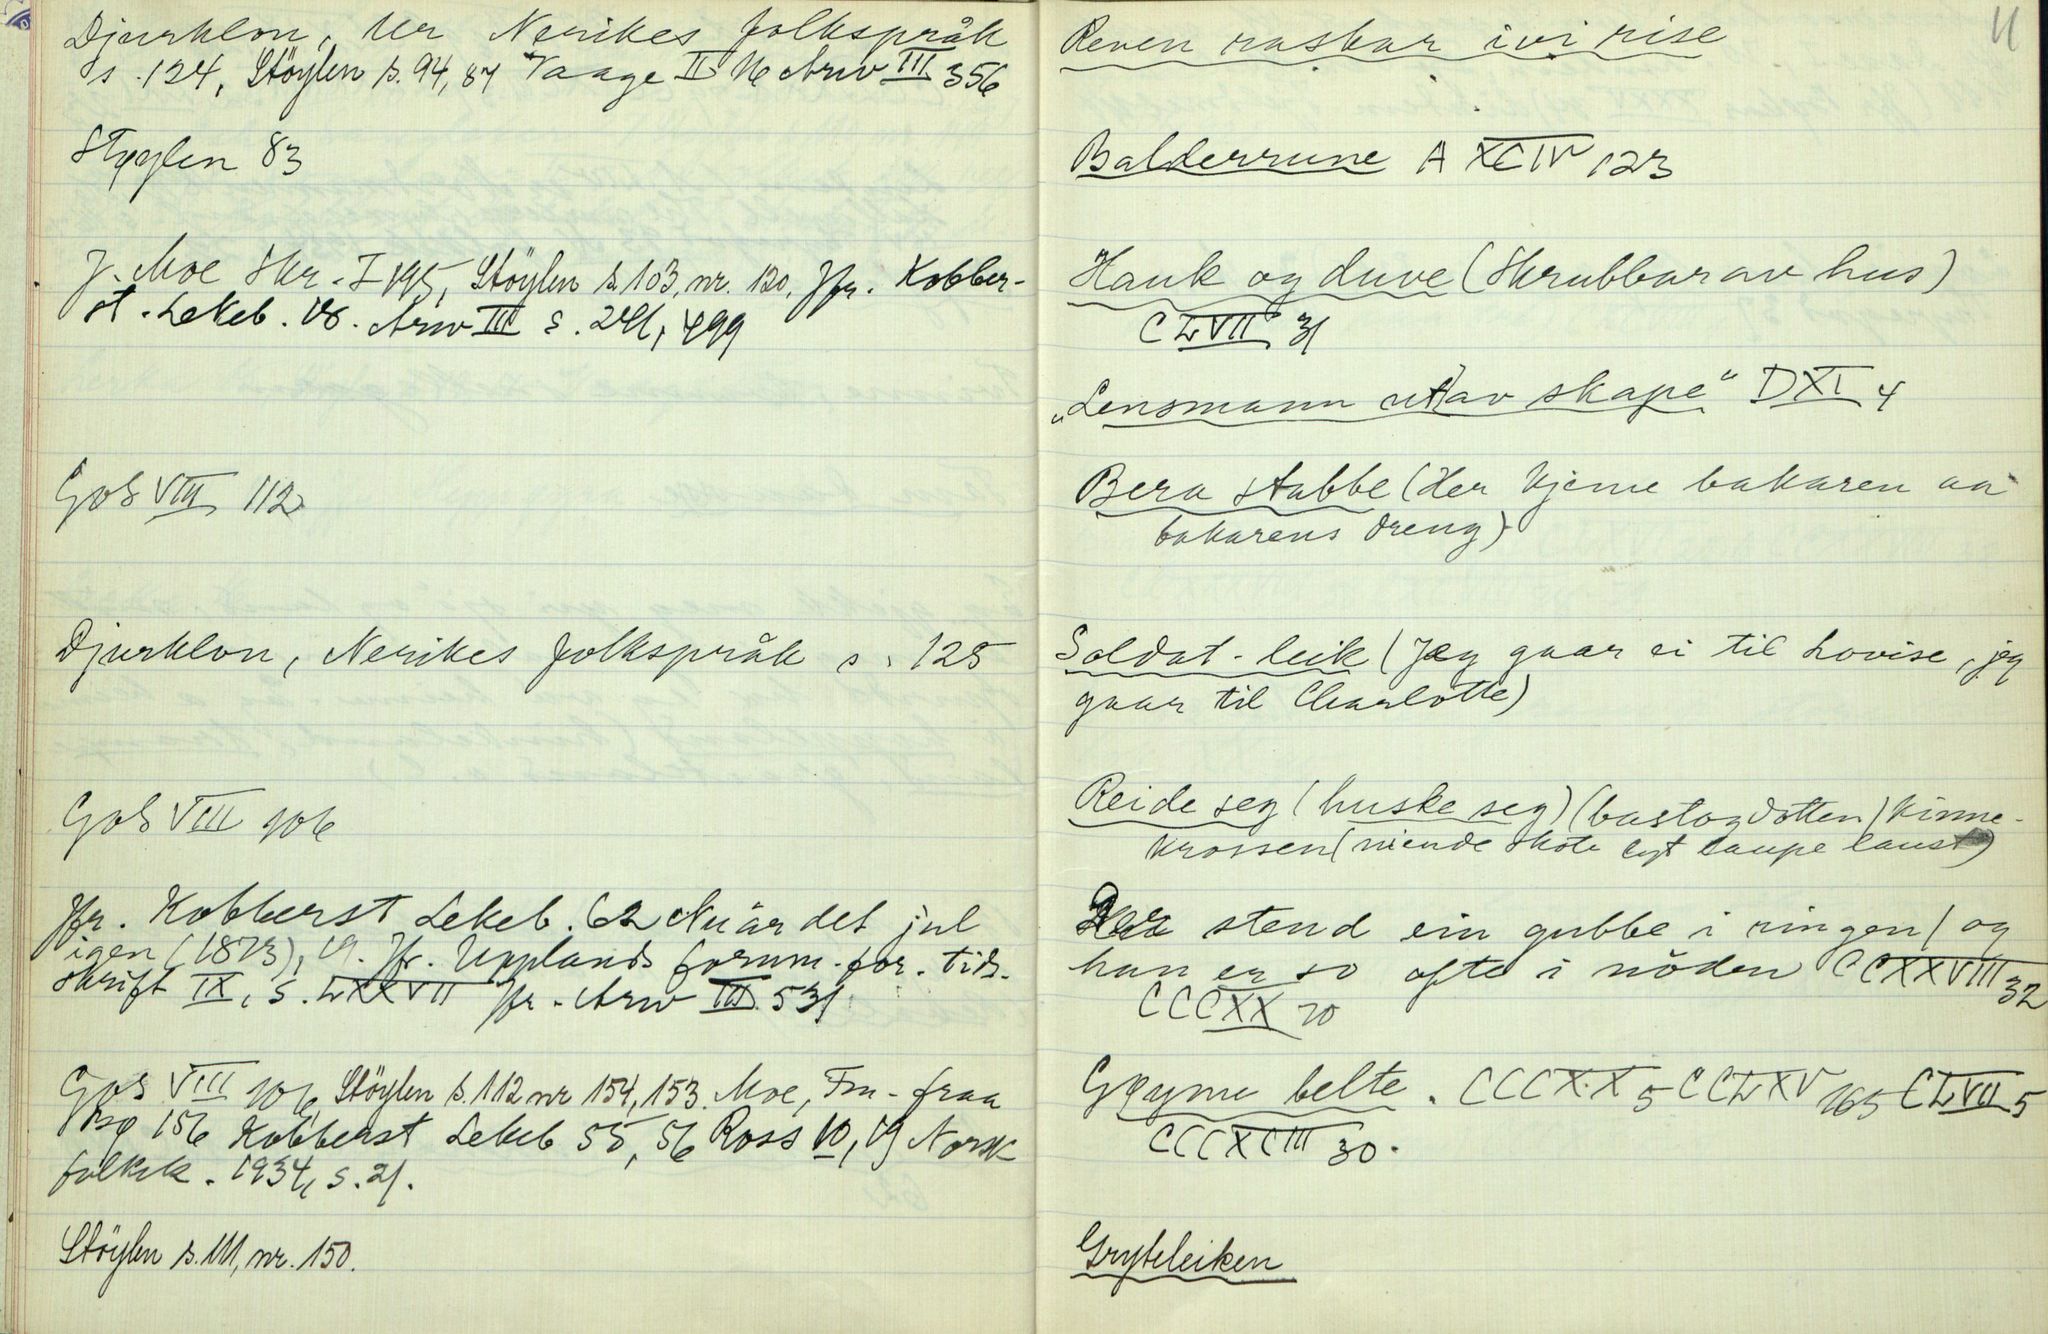 Djurklou, Ur Nerikes folkspråk
s. 124, Stöylen s. 94, 87 Vaage II 16 Arw III 356
Støylen 83
J. Moe Skr. I 195, Stöylen s. 103, nr. 130, Jfr. Kobber-
st. Lekeb. 18. Arw III s. 241, 499
GoS VIII 112
Djurklou, Nerikes folkspråk s. 125
GoS VIII 106
Jfr. Kobberst Lekeb. 62 Nu är det jul
igen (1873), 19. Jfr. Upplands fornm. för. tids-
skrift IX, s. LXXVII Jfr. Arw III 531
GoS VIII 106, Stöylen s. 112 nr 154, 153. Moe, Fm- fraa
156 Kobberst Lekeb 55, 56 Ross 10, 19 Norsk
folkek. 1934, s. 21.
Stöylen s. 111, nr. 150.
11
Reven raskar ivi rise
Balderrune A XCIV 123
Hauk og duve (Skrubbar av hus)
CLVII 31
„Lensmann ut av skape" DXI 4
Bera stabbe (Her kjeme bakaren aa
bakarens dreng)
Soldat-leik (Jeg gaar ei til Lovise, jeg
gaar til Charlotte)
Reide seg (huske seg) (bastogdotten) kinne-
krossen (niende skote lyt laupe laust)
Der stend ein gubbe i ringen / og
han er so ofte i nöden CCXXVIII 32
CCCXX 70
Gøyme belte. CCCXX 5 CCLXV 165 CLVII 5
CCCXCIII 30.
Gryteleiken